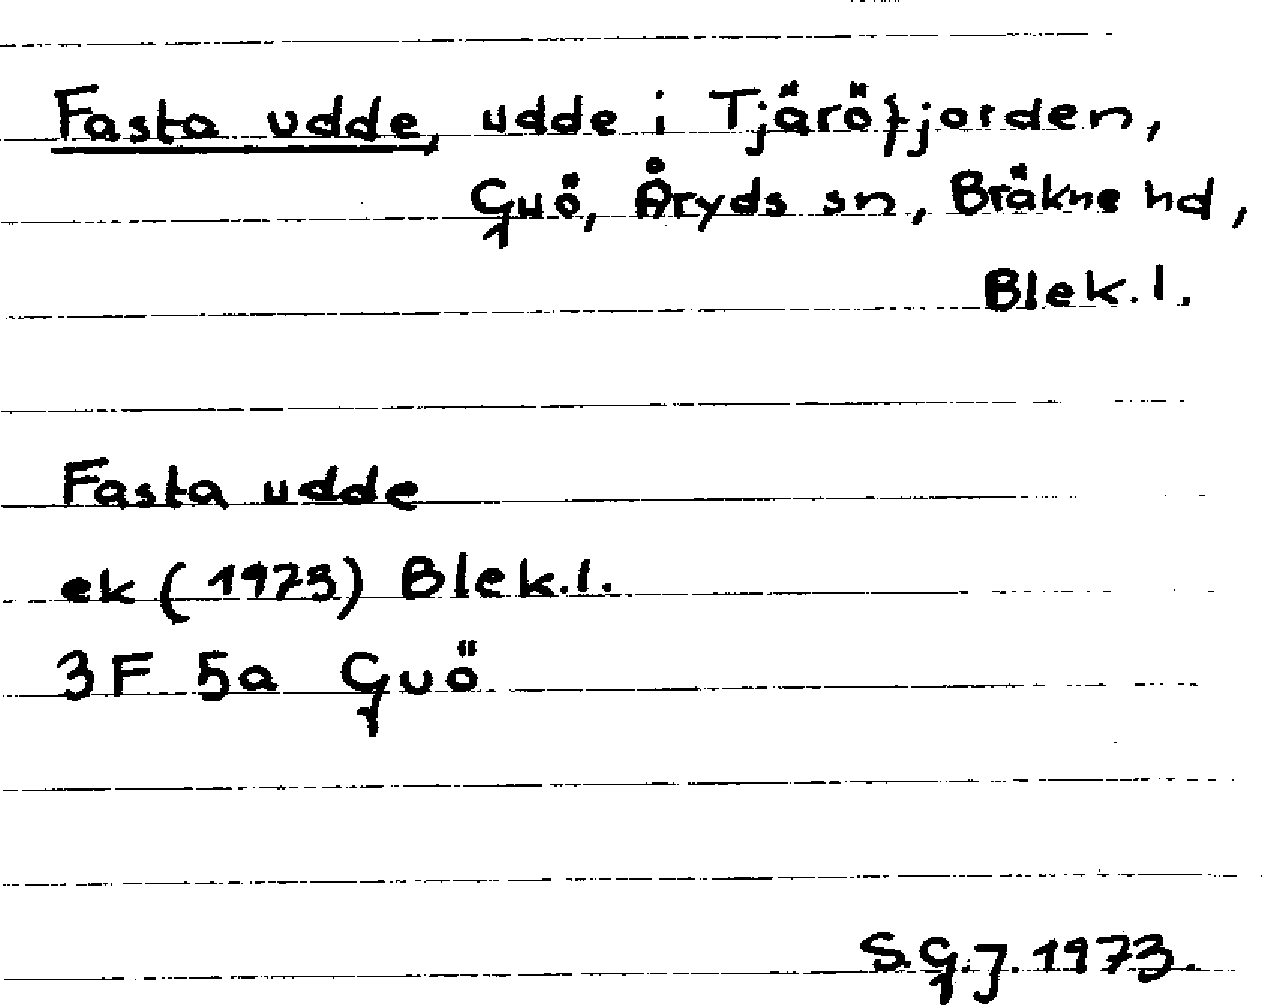 Fasta udde, udde i Tjäröfjorden,
Guö, Åryds sn, Bräkne hd,
Blek. l.
Fasta udde
ek (1973) Blek. l.
3F 5a Guö
S.G.J. 1973.